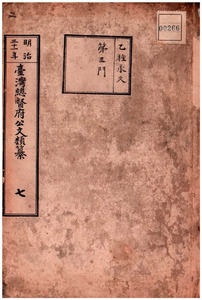 00266
乙種永久
第五門
明治
三十年
臺灣總督府公文類纂
七